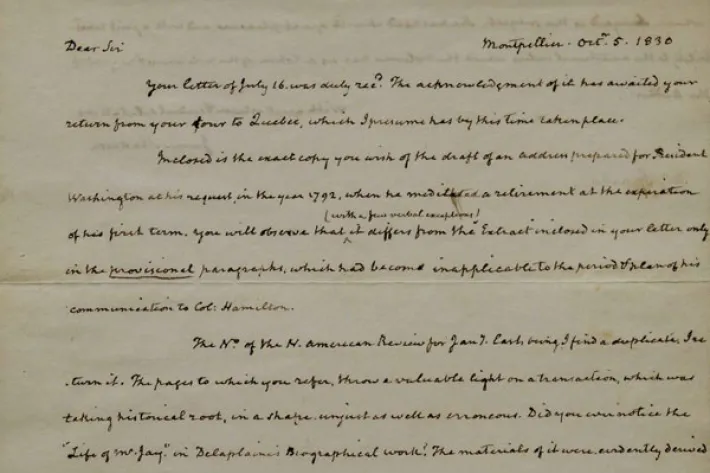 Dear Sir
Montpellier. Octr. 5. 1830
Your letter of July 16. was duly recd. The acknowledgment of it has awaited your
return from your tour to Quebec, which I presume has by this time taken place.
Inclosed is the exact copy you wish of the draft of an address prepared for President
Washington at his request, in the year 1792, when he meditated a retirement at the expiration
(with a few verbal exceptions)
of his first term. You will observe that it differs from the Extract inclosed in your letter only
in the provisional paragraphs, which had become inapplicable to the period & plan of his
communication to Col: Hamilton.
The No. of the N. American Review for Jany. last being, I find a duplicate, I re
turn it. The pages to which you refer, throw a valuable light on a transaction, which was
taking historical root, in a shape unjust as well as erroneous. Did you ever notice the
"Life of Mr. Jay" in Delaplaine's Biographical work? The materials of it were evidently derived